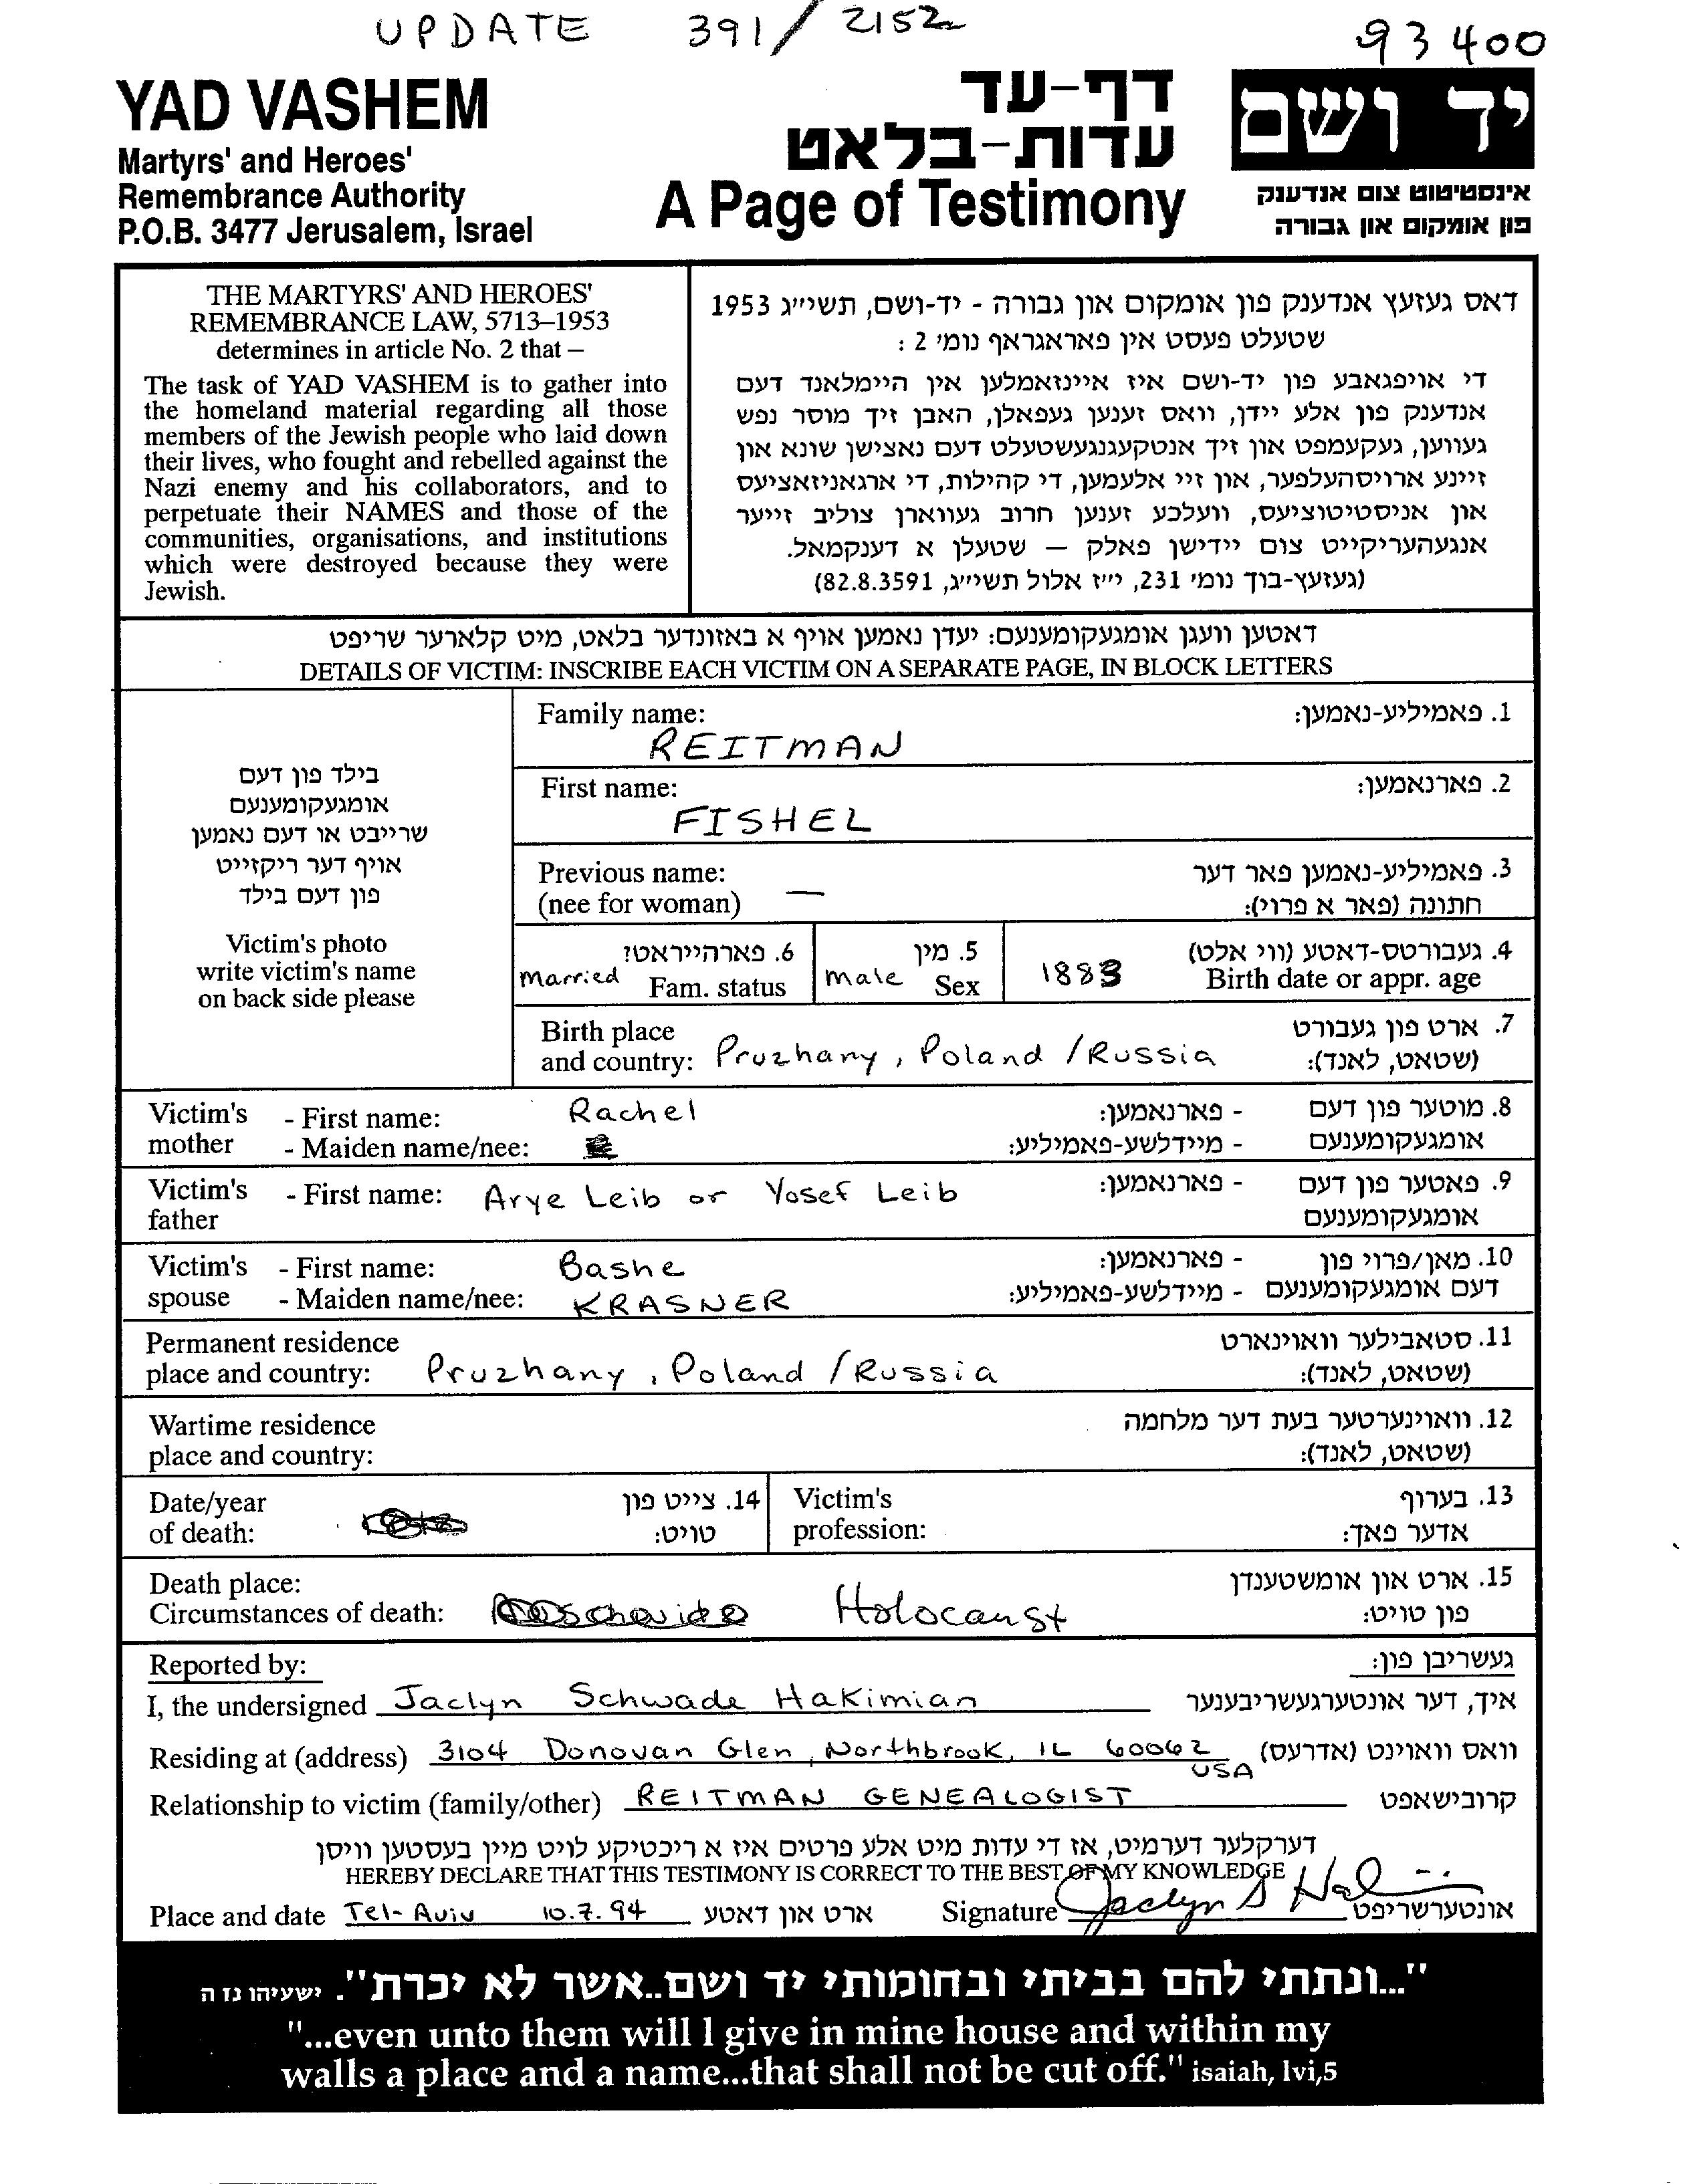 UPDATE 391/2152
93400
YAD VASHEM
Martyrs' and Heroes'
Remembrance Authority
P.O.B. 3477 Jerusalem, Israel
דף-עד
עדות-בלאט
A Page of Testimony
יד ושם
אינסטיטוט צום אנדענק
פון אומקום און גבורה
THE MARTYRS' AND HEROES'
REMEMBRANCE LAW, 5713–1953
determines in article No. 2 that –
The task of YAD VASHEM is to gather into
the homeland material regarding all those
members of the Jewish people who laid down
their lives, who fought and rebelled against the
Nazi enemy and his collaborators, and to
perpetuate their NAMES and those of the
communities, organisations, and institutions
which were destroyed because they were
Jewish.
דאס געזעץ אנדענק פון אומקום און גבורה - יד-ושם, תשי״ג 1953
שטעלט פעסט אין פאראגראף נומ׳ 2 :
די אויפגאבע פון יד-ושם איז איינזאמלען אין היימלאנד דעם
אנדענק פון אלע יידן, וואס זענען געפאלן, האבן זיך מוסר נפש
געווען, געקעמפט און זיך אנטקעגנגעשטעלט דעם נאצישן שונא און
זיינע ארויסהעלפער, און זיי אלעמען, די קהילות, די ארגאניזאציעס
און אניסטיטוציעס, וועלכע זענען חרוב געווארן צוליב זייער
אנגעהעריקייט צום יידישן פאלק — שטעלן א דענקמאל.
(געזעץ-בוך נומ׳ 231, י״ז אלול תשי״ג, 82.8.3591)
דאטען וועגן אומגעקומענעם: יעדן נאמען אויף א באזונדער בלאט, מיט קלארער שריפט
DETAILS OF VICTIM: INSCRIBE EACH VICTIM ON A SEPARATE PAGE, IN BLOCK LETTERS
בילד פון דעם
אומגעקומענעם
שרייבט או דעם נאמען
אויף דער ריקזייט
פון דעם בילד
Victim's photo
write victim's name
on back side please
Family name: 1. פאמיליע-נאמען:
REITMAN
First name: 2. פארנאמען:
FISHEL
Previous name: 3. פאמיליע-נאמען פאר דער
(nee for woman) — חתונה (פאר א פרוי):
6. פארהייראטי? 5. מין 4. געבורטס-דאטע (ווי אלט)
Married Fam. status male Sex 1883 Birth date or appr. age
Birth place 7. ארט פון געבורט
and country: Pruzhany, Poland / Russia (שטאט, לאנד):
Victim's - First name: Rachel - פארנאמען: 8. מוטער פון דעם
mother - Maiden name/nee: - מיידלשע-פאמיליע: אומגעקומענעם
Victim's - First name: Arye Leib or Yosef Leib - פארנאמען: 9. פאטער פון דעם
father אומגעקומענעם
Victim's - First name: Bashe - פארנאמען: 10. מאן/פרוי פון
spouse - Maiden name/nee: KRASNER - מיידלשע-פאמיליע: דעם אומגעקומענעם
Permanent residence 11. סטאבילער וואוינארט
place and country: Pruzhany, Poland / Russia (שטאט, לאנד):
Wartime residence 12. וואוינערטער בעת דער מלחמה
place and country: (שטאט, לאנד):
Date/year 14. צייט פון Victim's 13. בערוף
of death: טויט: profession: אדער פאך:
Death place: 15. ארט און אומשטענדן
Circumstances of death: Holocaust פון טויט:
Reported by: געשריבן פון:
I, the undersigned Jaclyn Schwade Hakimian איך, דער אונטערגעשריבענער
Residing at (address) 3104 Donovan Glen, Northbrook, IL 60062 USA וואס וואוינט (אדרעס)
Relationship to victim (family/other) REITMAN GENEALOGIST קרובישאפט
דערקלער דערמיט, אז די עדות מיט אלע פרטים איז א ריכטיקע לויט מיין בעסטען וויסן
HEREBY DECLARE THAT THIS TESTIMONY IS CORRECT TO THE BEST OF MY KNOWLEDGE
Place and date Tel-Aviv 10.7.94 ארט און דאטע Signature Jaclyn S Hakimian אונטערשריפט
"...ונתתי להם בביתי ובחומותי יד ושם..אשר לא יכרת". ישעיהו נז ה
"...even unto them will I give in mine house and within my
walls a place and a name...that shall not be cut off." isaiah, lvi,5